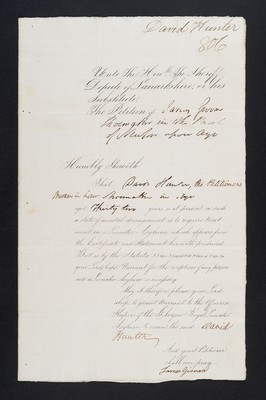 David Hunter
806
Unto The Honble The Sheriff
Depute of Lanarkshire, or his
Substitute.
The Petition of James
Shoemaker in the
of Newton upon Ayr
Humbly Sheweth
That David Hunter, the Petitioner's
Shoemaker in Ayr
aged Thirty two years is at present in such
a state of mental derangement as to require treat-
ment in a Lunatic Asylum, which appears from
the Certificate and Statement herewith produced.
That by the Statute
your Lordship's Warrant for the reception of any person
into a Lunatic Asylum is necessary.
May it therefore please your Lord-
ship to grant Warrant to the
Keeper of the Glasgow Royal Lunatic
Asylum to receive the said David
Hunter
And your Petitioner
shall ever pray.
James